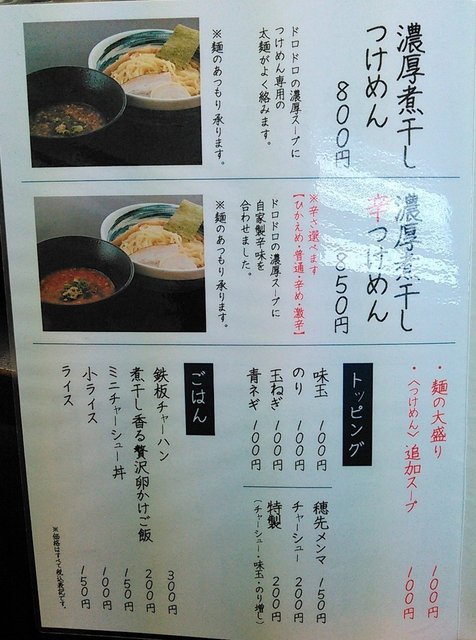 濃厚煮干し
つけめん
800円
ドロドロの濃厚スープに
つけめん専用の
太麺がよく絡みます。
※麺のあつもり承ります。
濃厚煮干し
辛つけめん
850円
※辛さ選べます
【ひかえめ・普通・辛め・激辛】
ドロドロの濃厚スープに
自家製辛味を
合わせました。
※麺のあつもり承ります。
・麺の大盛り 100円
・〈つけめん〉追加スープ 100円
トッピング
味玉 100円
のり 100円
玉ねぎ 100円
青ネギ 100円
穂先メンマ 150円
チャーシュー 200円
特製 200円
(チャーシュー・味玉・のり増し)
ごはん
鉄板チャーハン 300円
煮干し香る贅沢卵かけご飯 200円
ミニチャーシュー丼 150円
小ライス 100円
ライス 150円
※価格はすべて税込表記です。